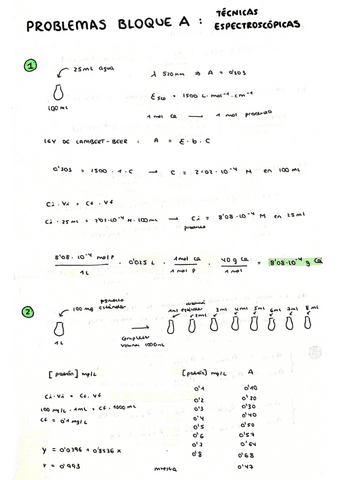 PROBLEMAS BLOQUE A : TÉCNICAS
ESPECTROSCÓPICAS
1
25mL agua
100 mL
λ 520nm ⇒ A = 0'303
ε520 = 1500 L·mol⁻¹·cm⁻¹
1 mol Ca → 1 mol producto
LEY DE LAMBERT-BEER: A = ε·b·C
0'303 = 1500·1·C → C = 2'02·10⁻⁴ M en 100 mL
Ci·Vi = Cf·Vf
Ci·25 mL = 2'02·10⁻⁴ M·100mL → Ci = 8'08·10⁻⁴ M en 25ml
producto
8'08·10⁻⁴ mol P / 1L · 0'025 L · 1 mol Ca / 1 mol P · 40 g Ca / 1 mol = 8'08·10⁻⁴ g Ca
2
100 mg
1 L
completar
volumen 1000mL
1mL 2mL 3mL 4mL 5mL 6mL 7mL 8mL
[patrón] mg/L
Ci·Vi = Cf·Vf
100 mg/L·1mL = Cf·1000 mL
Cf = 0'1 mg/L
y = 0'0396 + 0'8536 x
r = 0'993
[patrón] mg/L A
0'1 0'10
0'2 0'20
0'3 0'30
0'4 0'40
0'5 0'50
0'6 0'57
0'7 0'64
0'8 0'68
muestra 0'47